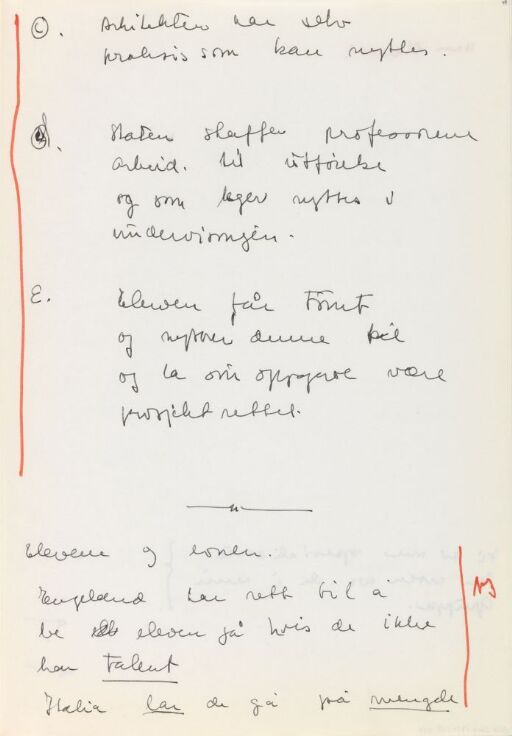 C. Arkitekten har selv
praksis som kan nyttes.
d. Staten skaffer professorene
arbeid. til utförelse
og som nyttes i
undervisningen.
E. Eleven får
og denne
og la sin oppgave være
prosjekt rettet.
Elevene og
England har rett til å
be eleven gå hvis de ikke
har talent
NB
Italia lar de gå på mengde